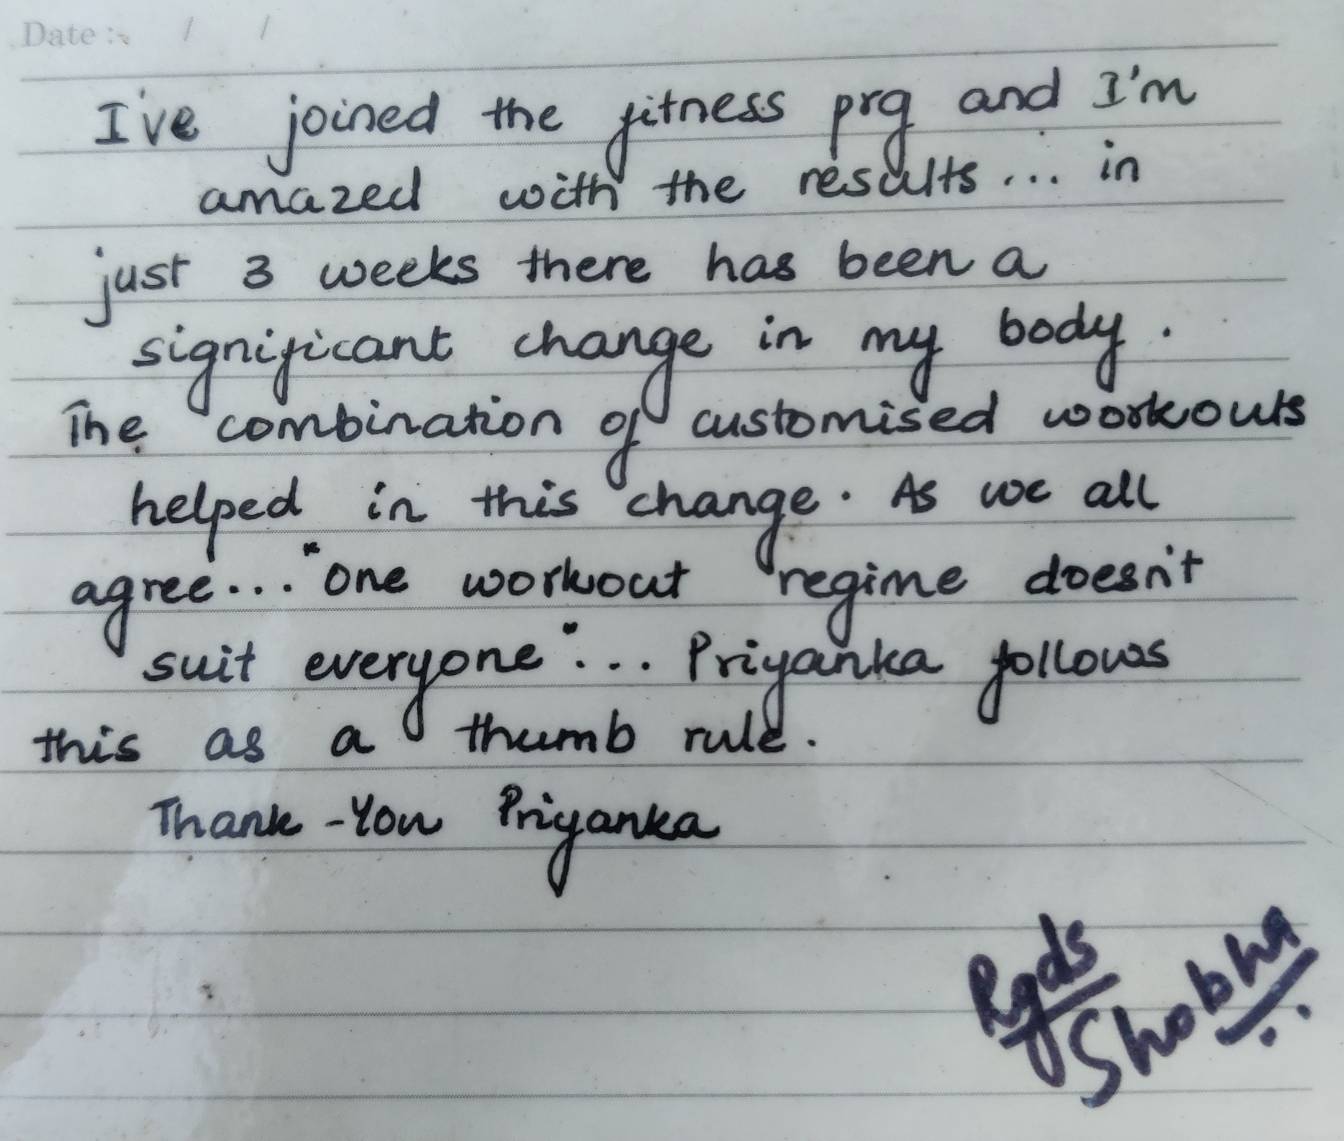 Date :- / /
I've joined the fitness prg and I'm
amazed with the results ... in
just 3 weeks there has been a
significant change in my body.
The combination of customised workouts
helped in this change. As we all
agree... "one workout regime doesn't
suit everyone"... Priyanka follows
this as a thumb rule.
Thank-You Priyanka
Rgds
Shobha